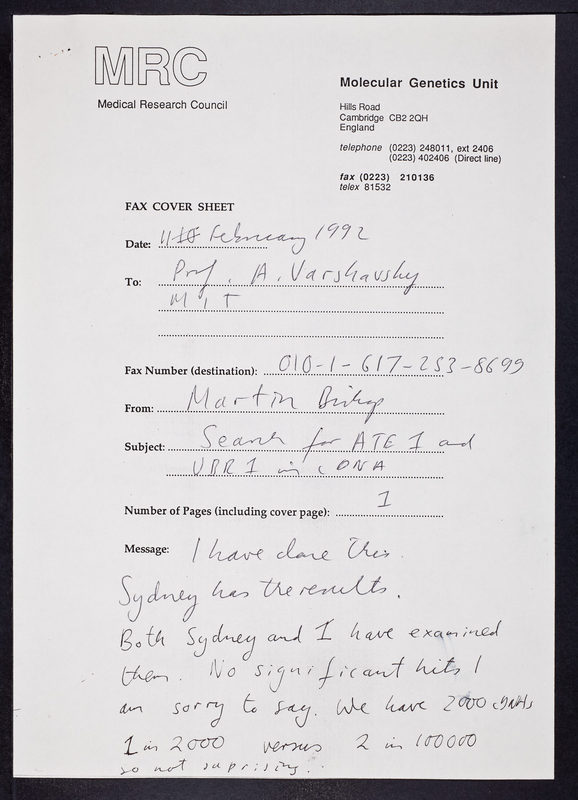 MRC
Medical Research Council
Molecular Genetics Unit
Hills Road
Cambridge CB2 2QH
England
telephone (0223) 248011, ext 2406
(0223) 402406 (Direct line)
fax (0223) 210136
telex 81532
FAX COVER SHEET
Date: February 1992
To: Prof. A. Varshavsky
MIT
Fax Number (destination): 010-1-617-253-8699
From: Martin Bishop
Subject: Search for ATE 1 and
UBR 1 in cDNA
Number of Pages (including cover page): 1
Message: I have done this.
Sydney has the results.
Both Sydney and I have examined
them. No significant hits I
am sorry to say. We have 2000 cDNAs
1 in 2000 versus 2 in 100000
so not suprising.